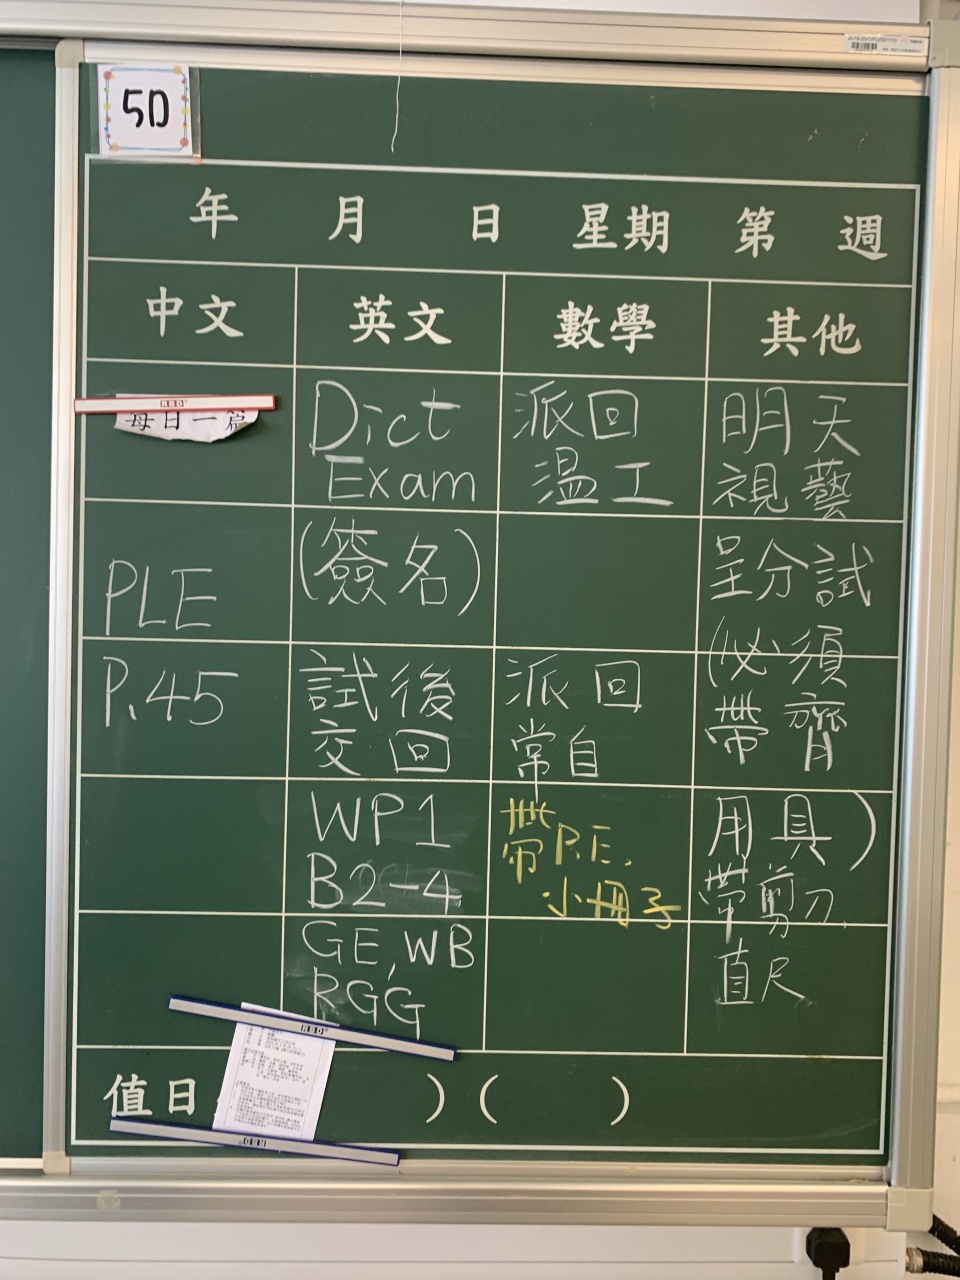 5D
年 月 日 星期 第 週
中文 英文 數學 其他
KBD
每日一篇
PLE
P.45
Dict
Exam
(簽名)
試後
交回
WP1
B2-4
GE, WB
RGG
派回
溫工
派回
常自
帶R.E.
小冊子
明天
視藝
呈分試
(必須
帶齊
用具)
帶剪刀
直尺
KBD
值日 ) ( )
KBD